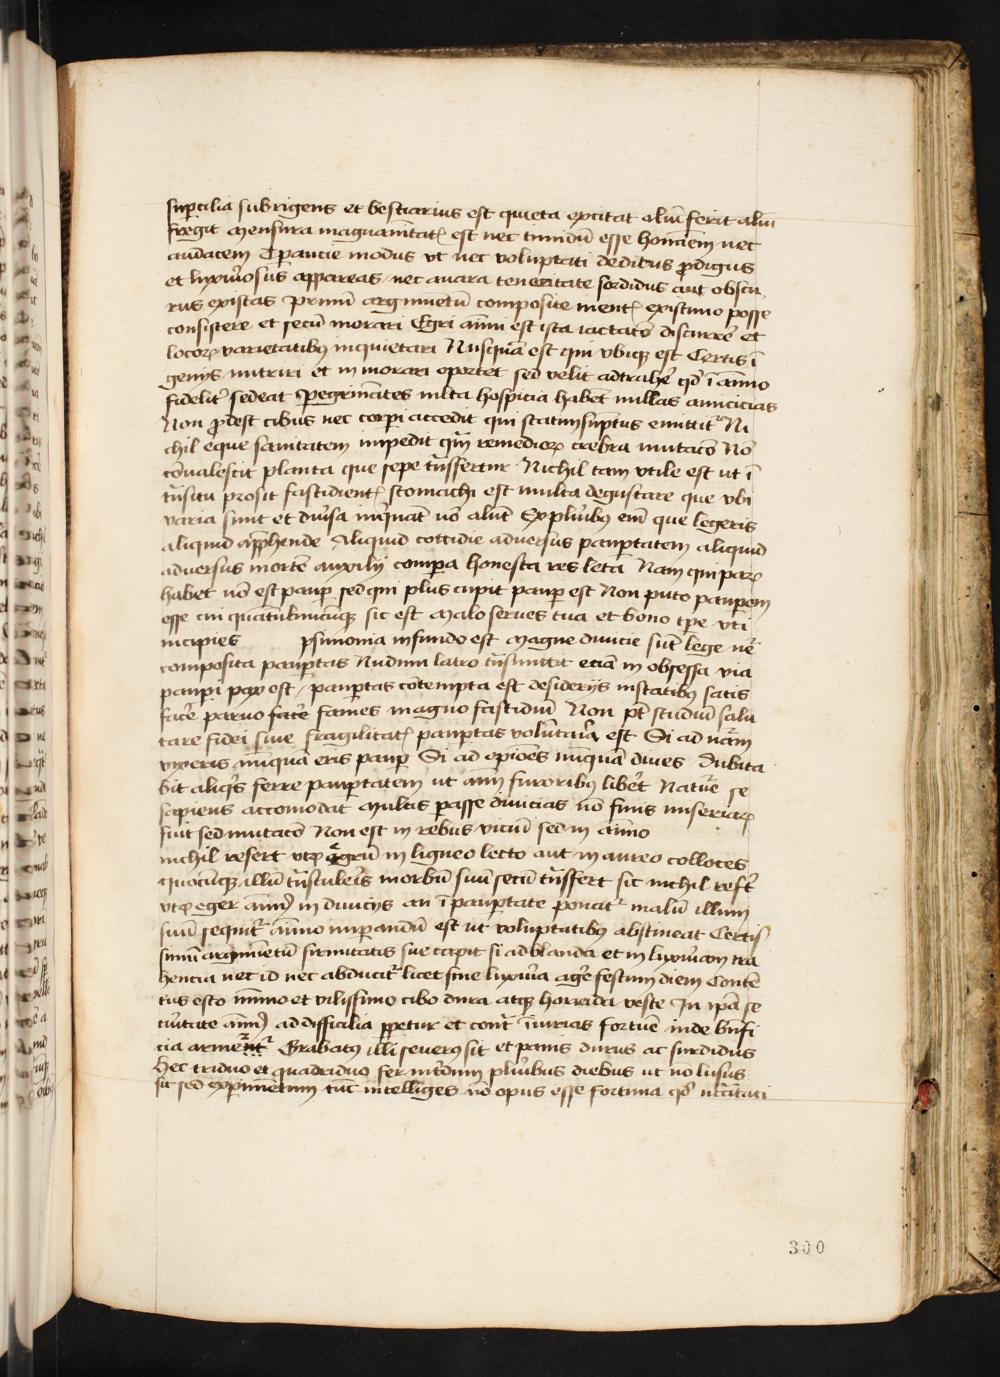 sup̱cilia subrigens et bestiarius est quieta excitat aliū ferit aliū
fregit Mensura magnanītatꝭ est nec timidū esse hominem nec
audacem Parcitie modus ut nec voluptati deditus ꝓdigus
et luxuriosus appareas / nec auara teneritate sordidus aut obscu
rus existas Primū argumētū composite mentꝭ existimo posse
consistere et secū morari Egri aīmi est ista iactatō discurrē et
locoꝝ varietatibꝰ inquietari Nusquā est qui vbiqꝫ est Certis ī
genijs nutriri et inmorari oportet sed velit adtrahē qd̓ ī aīmo
fidelit̓ sedeat Peregrinātes mlta hospicia habēt nullas amicicias
Non ꝓdest cibus nec corpi accedit qui statim sūptus emittit̓ Ni
chil eque sanitatem impedit qͣm remedioꝝ crebra mutatō Nō
cōualescit planta que sepe tn̄sfertur Nichil tam vtile est ut ī
tn̄situ prosit fastidientꝭ stomachi est multa degustare que vbi
varia sunt et diūsa inqͥnāt nō alūt Ex pluribꝰ em̄ que legeris
aliquid app̄hende Aliquid cottidie adversus paup̱tatem aliquid
adversus mortē auxilij compara honesta res leta Nam qui paꝝ
habet nō est paup̱ sed qui plus cupit paup̱ est Non puto paup̱em
esse cui quātulumcūqꝫ sic est Malo serues tua et bono tp̄e vti
incipies psimonia in fundo est Magne diuicie sūt lege nē
composita paup̱tas Nudum latro tn̄smittit etiā in obsessa via
paup̱i pax est / paup̱tas cōtempta est desiderijs instātibꝰ satis
facē paruo facē fames magno fastidiū Non pt̄ studiū salu
tare fidei siue fragilitatꝭ paup̱tas volūtaria est Si ad nām
vixeris nūquā eris paup̱ Si ad opiōes nūquā diues Dubita
bit aliqͥs ferre paup̱tatem ut aīm furoribꝰ libēt Natūe se
sapiens accomodat Multis parasse diuicias nō finis miseriaꝝ
fuit sed mutatō Non est in rebus viciū sed in aīmo
nichil refert vtꝝ egrū in ligneo lecto aut in aureo colloces
quocūqꝫ illū tn̄stuleris morbū suū secū tn̄sfert sic nichil refꝰt
vtꝝ eger aīmꝰ in diuicijs an ī paup̱tate ponat̓ malū illum
suū sequit̓ aīmo imp̱andū est ut voluptatibꝰ abstineat Certis
simū argumētū firmitatis sue capit si ad blanda et in luxuriam tra
hencia nec id nec abducit̓ licet sine luxuria agē festum diem Conten
tus esto mīmo et vilissimo cibo dura atqꝫ horrida veste In ipa se
cūitate aīmꝰ ad difficilia pp̱etur et cont̄ iniurias fortūe inde bn̄fi
cia armetur Grabatꝰ illi severꝰ sit et panis durus ac surdidus
Hec triduo et quadriduo fer int̓dum pluribus diebus ut nō lusus
sit sed exp̱imētum tūc intelliges nō opus esse fortuna qd̓ nc̄citati
300